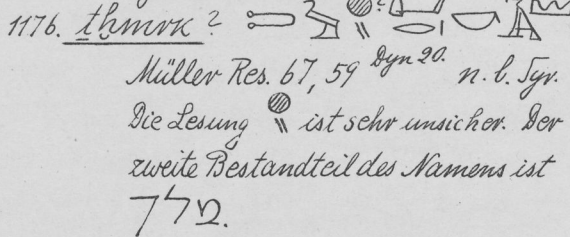 1176. ṯḫmrk ?
Müller Res. 67, 59 Dyn 20. n. l. Syr.
Die Lesung ist sehr unsicher. Der
zweite Bestandteil des Namens ist
מלך.